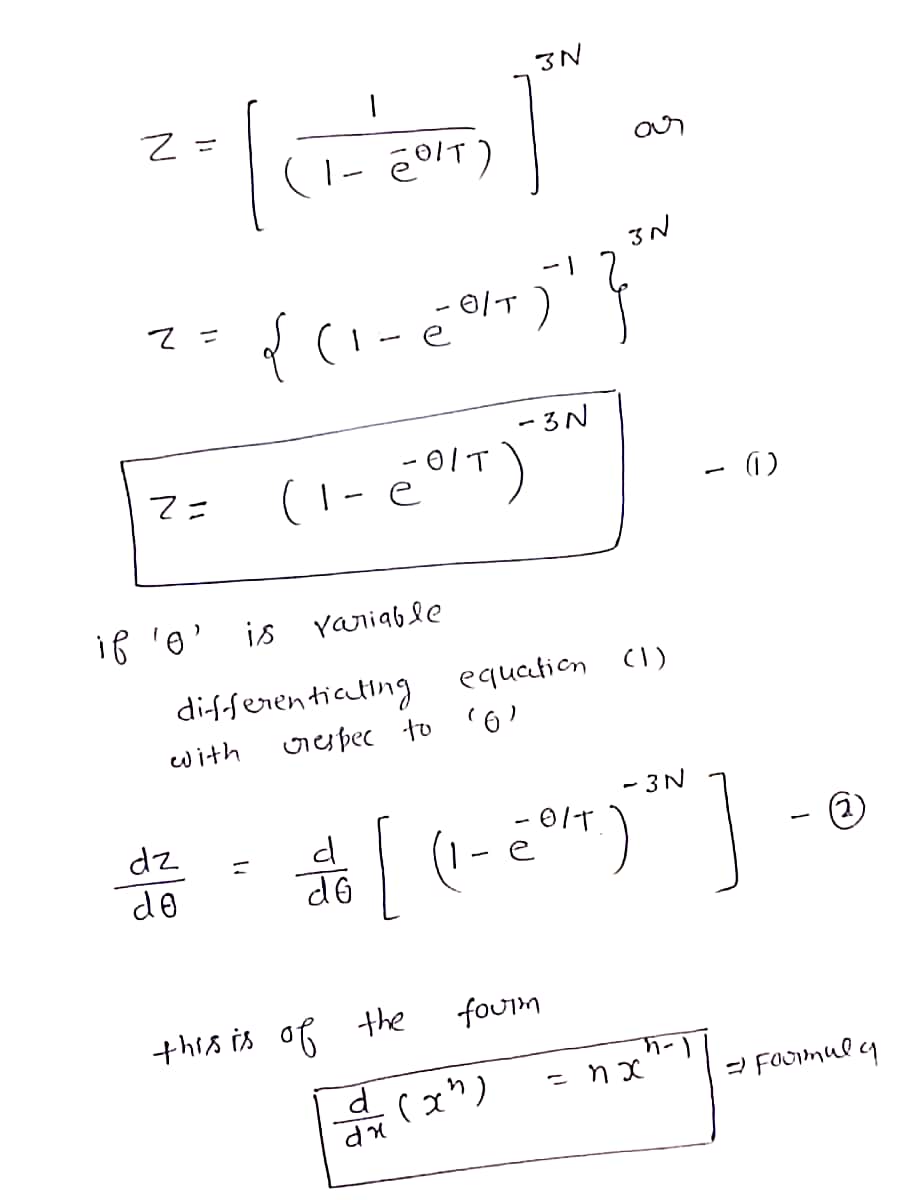 Z = [ 1 / (1 - e^-θ/T) ]^3N or
Z = { (1 - e^-θ/T)^-1 }^3N
Z = (1 - e^-θ/T)^-3N - (1)
if 'θ' is variable
differentiating equation (1)
with respec to 'θ'
dz/dθ = d/dθ [ (1 - e^-θ/T)^-3N ] - ②
this is of the form
d/dx (x^n) = nx^n-1 ⇒ Formula